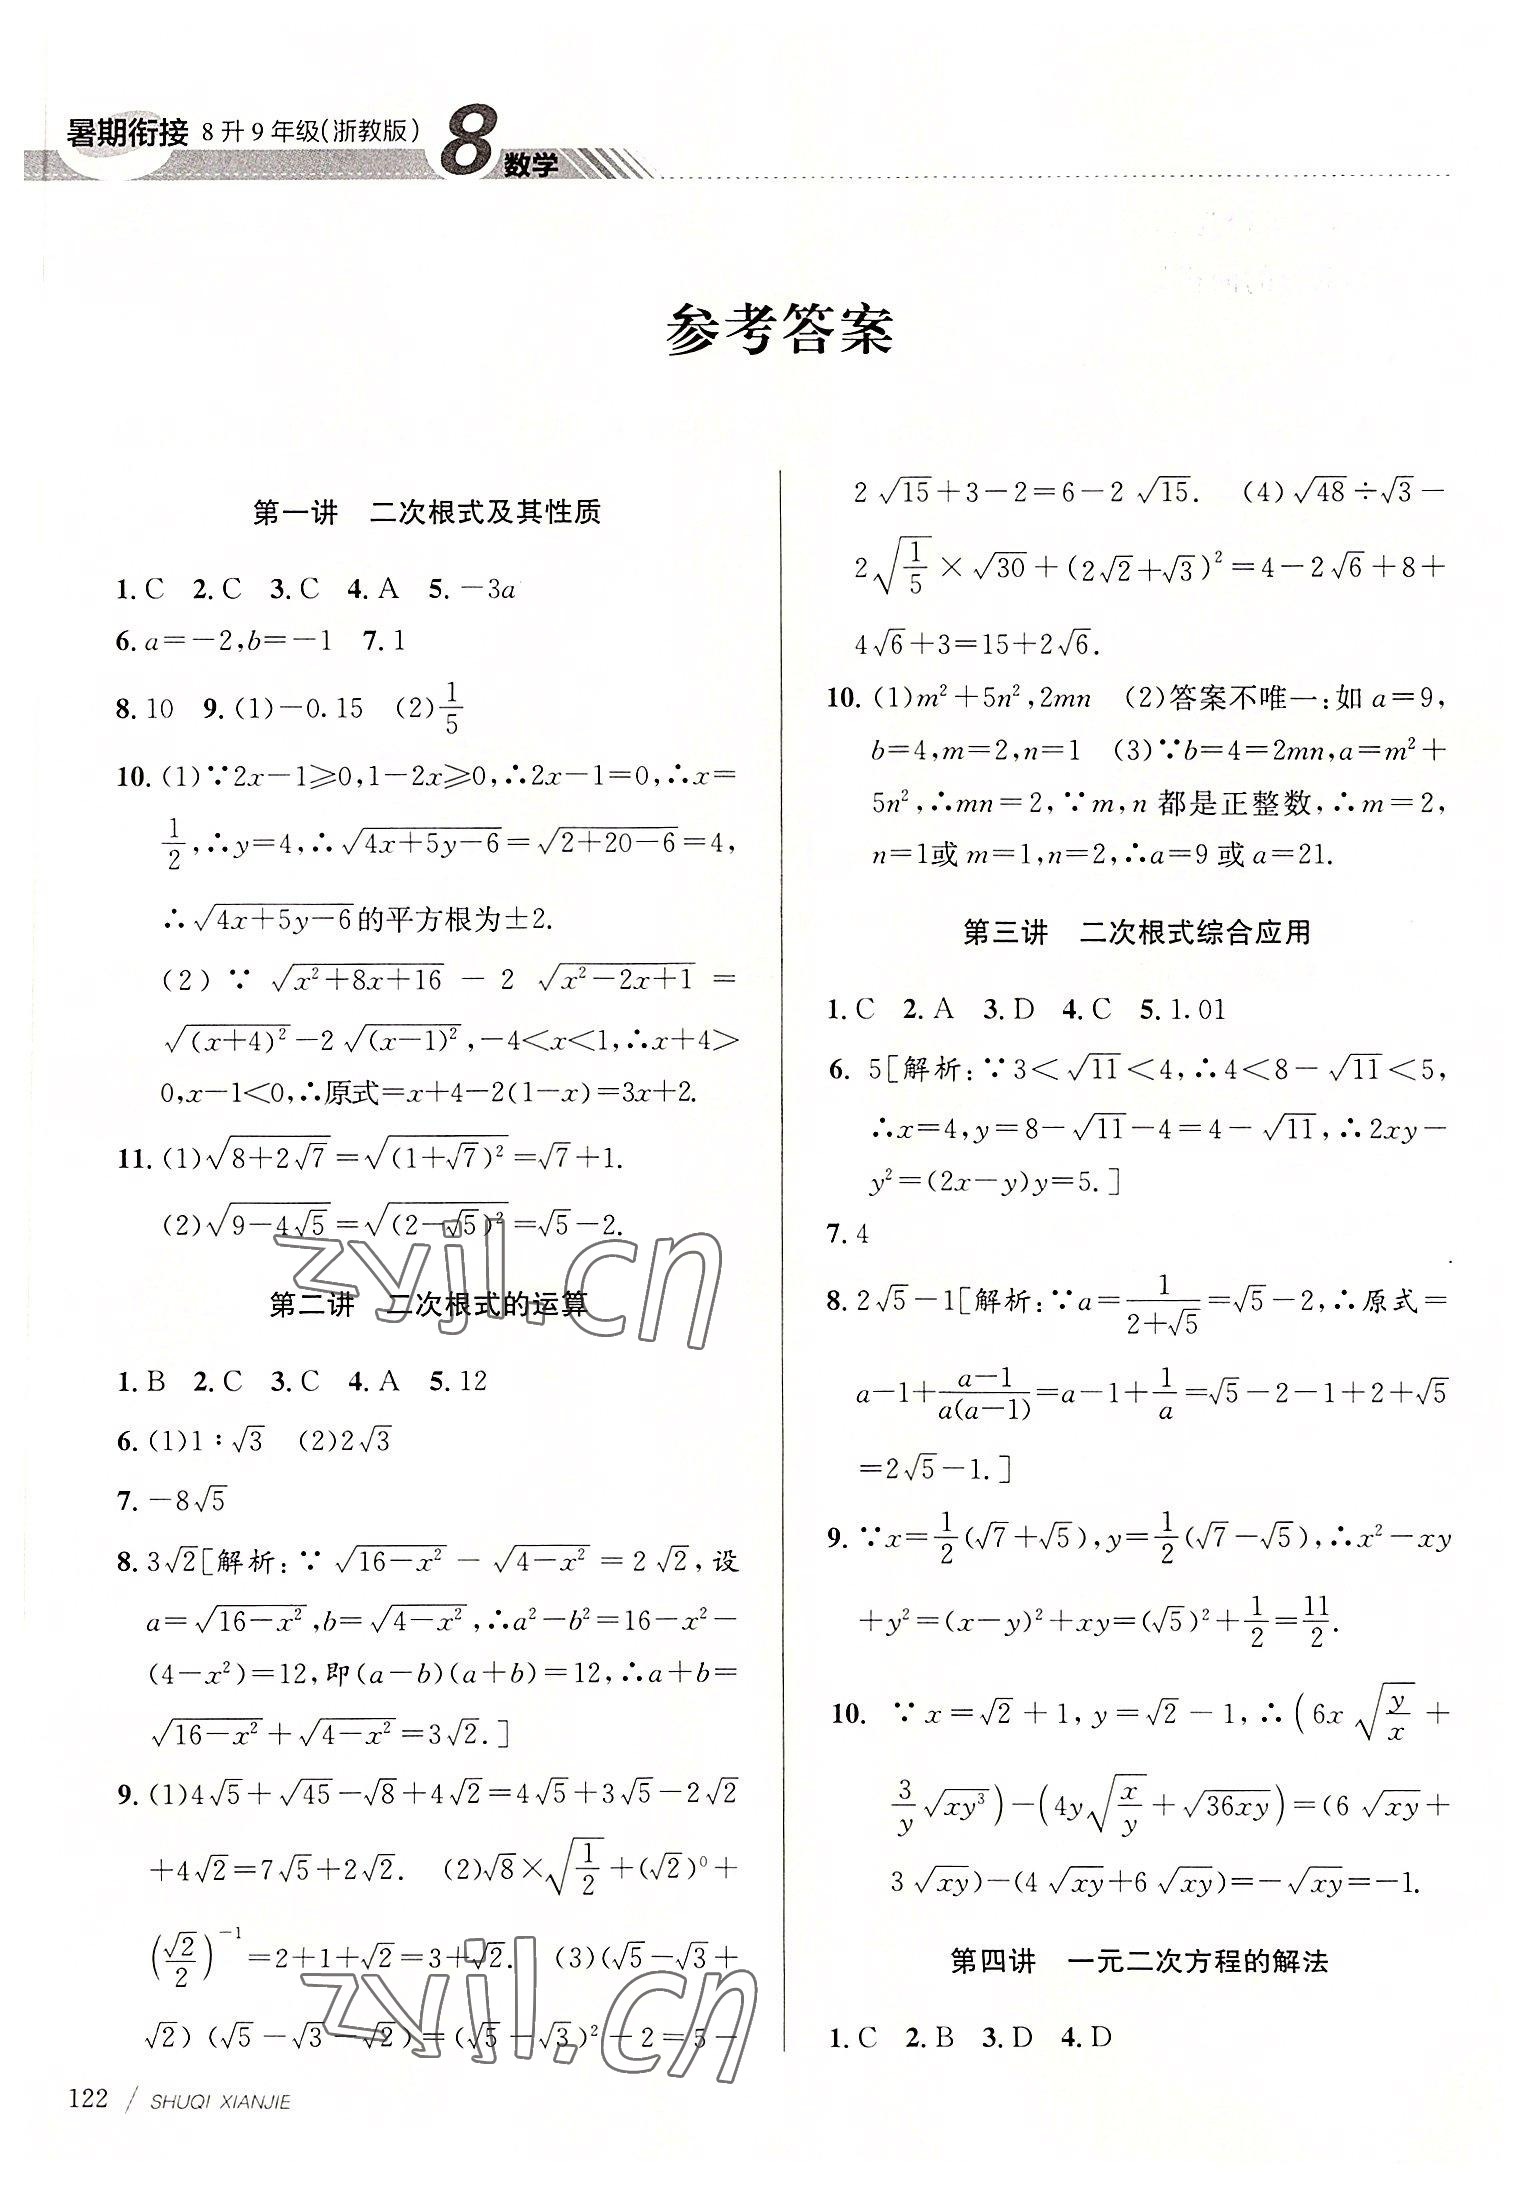 暑期衔接 8升9年级(浙教版) 8 数学
参考答案
第一讲 二次根式及其性质
1. C 2. C 3. C 4. A 5. －3a
6. a＝－2,b＝－1 7. 1
8. 10 9. (1)－0.15 (2)1/5
10. (1)∵2x－1≥0,1－2x≥0,∴2x－1＝0,∴x＝
1/2,∴y＝4,∴√(4x＋5y－6)＝√(2＋20－6)＝4,
∴√(4x＋5y－6)的平方根为±2.
(2)∵√(x²＋8x＋16)－2√(x²－2x＋1)＝
√((x＋4)²)－2√((x－1)²),－4＜x＜1,∴x＋4＞
0,x－1＜0,∴原式＝x＋4－2(1－x)＝3x＋2.
11. (1)√(8＋2√7)＝√((1＋√7)²)＝√7＋1.
(2)√(9－4√5)＝√((2－√5)²)＝√5－2.
第二讲 二次根式的运算
1. B 2. C 3. C 4. A 5. 12
6. (1)1∶√3 (2)2√3
7. －8√5
8. 3√2[解析:∵√(16－x²)－√(4－x²)＝2√2,设
a＝√(16－x²),b＝√(4－x²),∴a²－b²＝16－x²－
(4－x²)＝12,即(a－b)(a＋b)＝12,∴a＋b＝
√(16－x²)＋√(4－x²)＝3√2.]
9. (1)4√5＋√45－√8＋4√2＝4√5＋3√5－2√2
＋4√2＝7√5＋2√2. (2)√8×√(1/2)＋(√2)⁰＋
(√2/2)⁻¹＝2＋1＋√2＝3＋√2. (3)(√5－√3＋
√2)(√5－√3－√2)＝(√5－√3)²－2＝5－
2√15＋3－2＝6－2√15. (4)√48÷√3－
2√(1/5)×√30＋(2√2＋√3)²＝4－2√6＋8＋
4√6＋3＝15＋2√6.
10. (1)m²＋5n²,2mn (2)答案不唯一:如a＝9,
b＝4,m＝2,n＝1 (3)∵b＝4＝2mn,a＝m²＋
5n²,∴mn＝2,∵m,n都是正整数,∴m＝2,
n＝1或m＝1,n＝2,∴a＝9或a＝21.
第三讲 二次根式综合应用
1. C 2. A 3. D 4. C 5. 1.01
6. 5[解析:∵3＜√11＜4,∴4＜8－√11＜5,
∴x＝4,y＝8－√11－4＝4－√11,∴2xy－
y²＝(2x－y)y＝5.]
7. 4
8. 2√5－1[解析:∵a＝1/(2＋√5)＝√5－2,∴原式＝
a－1＋(a－1)/(a(a－1))＝a－1＋1/a＝√5－2－1＋2＋√5
＝2√5－1.]
9. ∵x＝1/2(√7＋√5),y＝1/2(√7－√5),∴x²－xy
＋y²＝(x－y)²＋xy＝(√5)²＋1/2＝11/2.
10. ∵x＝√2＋1,y＝√2－1,∴(6x√(y/x)＋
3/y√(xy³))－(4y√(x/y)＋√(36xy))＝(6√(xy)＋
3√(xy))－(4√(xy)＋6√(xy))＝－√(xy)＝－1.
第四讲 一元二次方程的解法
1. C 2. B 3. D 4. D
122 / SHUQI XIANJIE
zyjl.cn
zyjl.cn